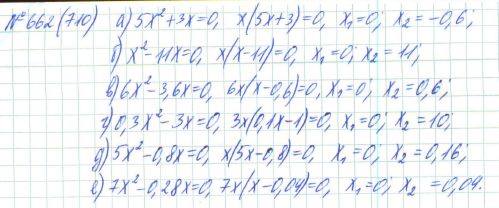 № 662(710) а) 5x²+3x=0, x(5x+3)=0, x₁=0; x₂=-0,6;
б) x²-11x=0, x(x-11)=0, x₁=0; x₂=11;
в) 6x²-3,6x=0, 6x(x-0,6)=0, x₁=0; x₂=0,6;
г) 0,3x²-3x=0, 3x(0,1x-1)=0, x₁=0; x₂=10;
д) 5x²-0,8x=0, x(5x-0,8)=0, x₁=0; x₂=0,16;
е) 7x²-0,28x=0, 7x(x-0,04)=0, x₁=0; x₂=0,04.